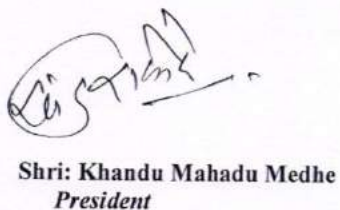 Shri: Khandu Mahadu Medhe
President